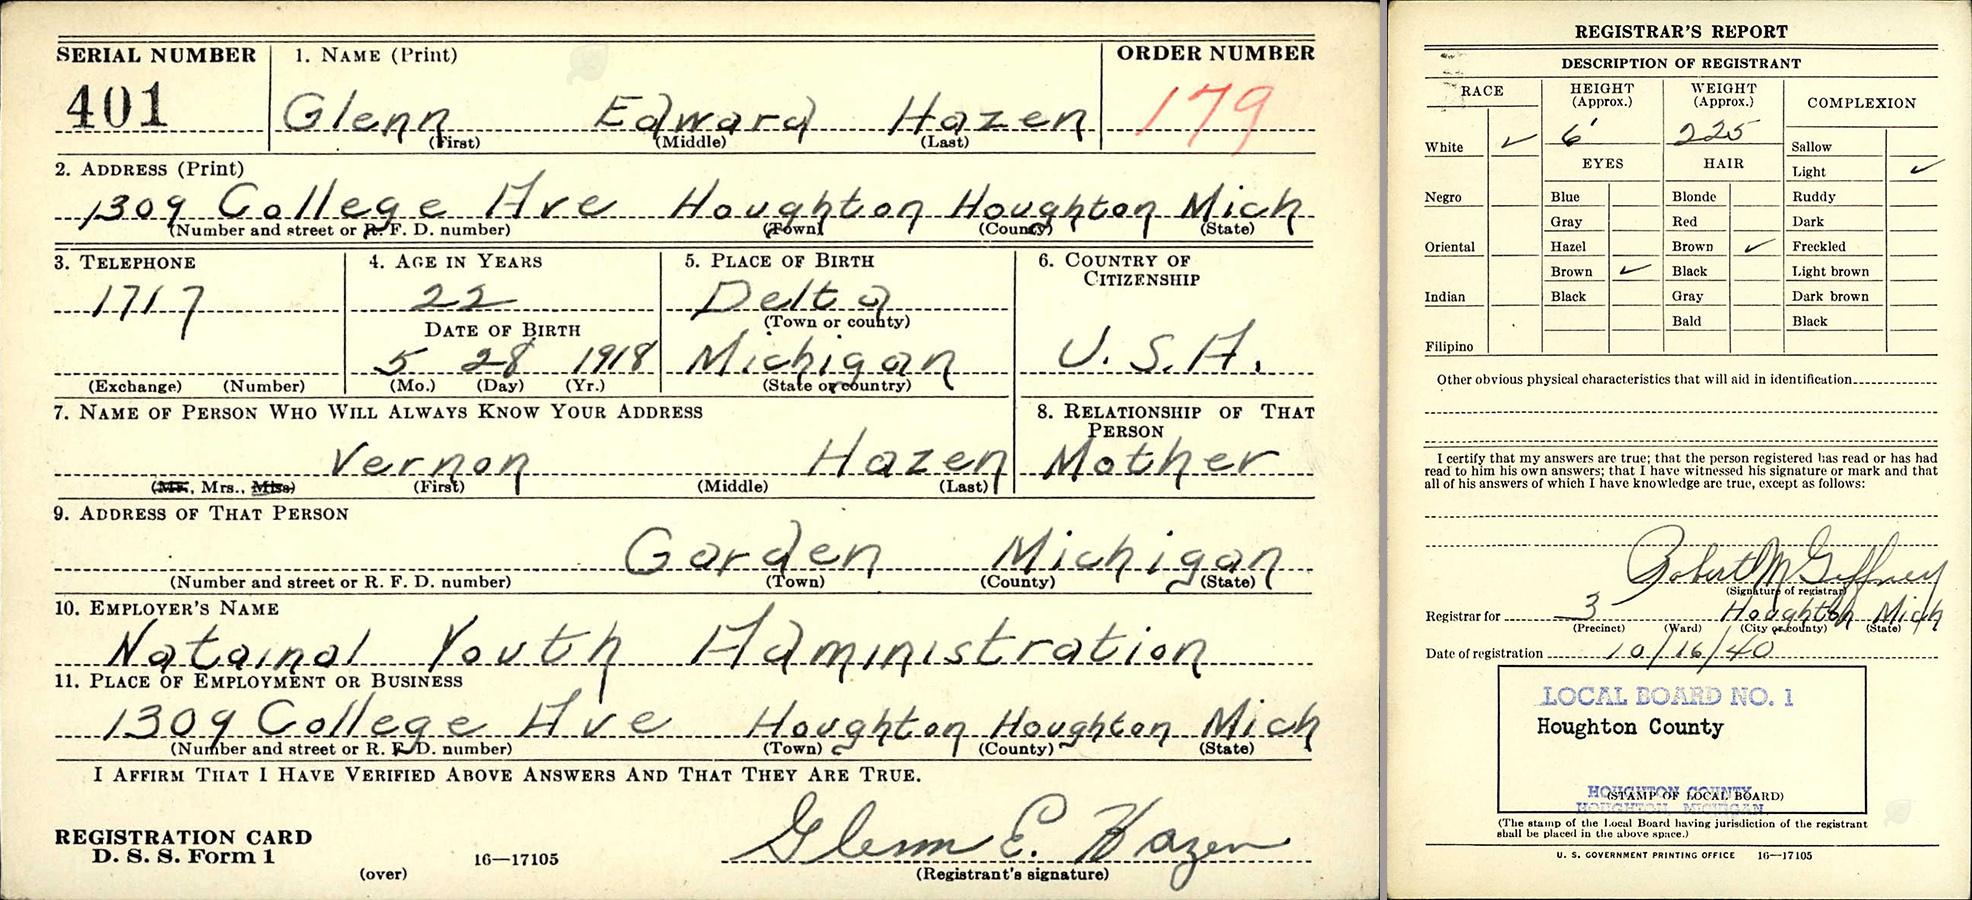 SERIAL NUMBER 1. NAME (Print) ORDER NUMBER
401 Glenn Edward Hazen 179
(First) (Middle) (Last)
2. ADDRESS (Print)
1309 College Ave Houghton Houghton Mich
(Number and street or R. F. D. number) (Town) (County) (State)
3. TELEPHONE 4. AGE IN YEARS 5. PLACE OF BIRTH 6. COUNTRY OF CITIZENSHIP
1717 22 Delta
(Town or county)
DATE OF BIRTH
5 28 1918 Michigan U. S. A.
(Exchange) (Number) (Mo.) (Day) (Yr.) (State or country)
7. NAME OF PERSON WHO WILL ALWAYS KNOW YOUR ADDRESS 8. RELATIONSHIP OF THAT PERSON
Vernon Hazen Mother
(Mr., Mrs., Miss) (First) (Middle) (Last)
9. ADDRESS OF THAT PERSON
Garden Michigan
(Number and street or R. F. D. number) (Town) (County) (State)
10. EMPLOYER'S NAME
Natainal Youth Administration
11. PLACE OF EMPLOYMENT OR BUSINESS
1309 College Ave Houghton Houghton Mich
(Number and street or R. F. D. number) (Town) (County) (State)
I AFFIRM THAT I HAVE VERIFIED ABOVE ANSWERS AND THAT THEY ARE TRUE.
REGISTRATION CARD
D. S. S. Form 1 16—17105 Glenn E. Hazen
(over) (Registrant's signature)
REGISTRAR'S REPORT
DESCRIPTION OF REGISTRANT
RACE HEIGHT (Approx.) WEIGHT (Approx.) COMPLEXION
White ✓ 6' 225 Sallow
EYES HAIR Light ✓
Negro Blue Blonde Ruddy
Gray Red Dark
Oriental Hazel Brown ✓ Freckled
Brown ✓ Black Light brown
Indian Black Gray Dark brown
Bald Black
Filipino
Other obvious physical characteristics that will aid in identification
I certify that my answers are true; that the person registered has read or has had
read to him his own answers; that I have witnessed his signature or mark and that
all of his answers of which I have knowledge are true, except as follows:
Robert M Geffney
(Signature of registrar)
Registrar for 3 Houghton Mich
(Precinct) (Ward) (City or county) (State)
Date of registration 10/16/40
LOCAL BOARD NO. 1
Houghton County
HOUGHTON COUNTY
(STAMP OF LOCAL BOARD)
HOUGHTON, MICHIGAN
(The stamp of the Local Board having jurisdiction of the registrant
shall be placed in the above space.)
U. S. GOVERNMENT PRINTING OFFICE 16—17105